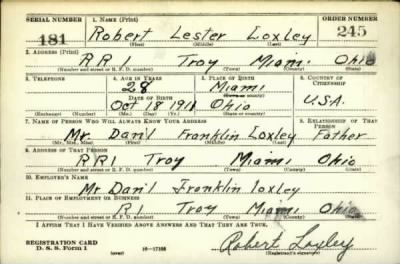 SERIAL NUMBER 1. NAME (Print) ORDER NUMBER
181 Robert Lester Loxley 245
(First) (Middle) (Last)
2. ADDRESS (Print)
R R 1 Troy Miami Ohio
(Number and street or R. F. D. number) (Town) (County) (State)
3. TELEPHONE 4. AGE IN YEARS 5. PLACE OF BIRTH 6. COUNTRY OF CITIZENSHIP
28 Miami
DATE OF BIRTH (Town or county)
Oct 18 1911 Ohio U.S.A.
(Exchange) (No.) (Mo.) (Day) (Yr.) (State or country)
7. NAME OF PERSON WHO WILL ALWAYS KNOW YOUR ADDRESS 8. RELATIONSHIP OF THAT PERSON
Mr. Dan'l Franklin Loxley Father
(Mr., Mrs., Miss) (First) (Middle) (Last)
9. ADDRESS OF THAT PERSON
R R 1 Troy Miami Ohio
(Number and street or R. F. D. number) (Town) (County) (State)
10. EMPLOYER'S NAME
Mr Dan'l Franklin Loxley
11. PLACE OF EMPLOYMENT OR BUSINESS
R 1 Troy Miami Ohio
(Number and street or R. F. D. number) (Town) (County) (State)
I AFFIRM THAT I HAVE VERIFIED ABOVE ANSWERS AND THAT THEY ARE TRUE.
REGISTRATION CARD
D. S. S. Form 1 (over) 16—17105 Robert Loxley
(Registrant's signature)